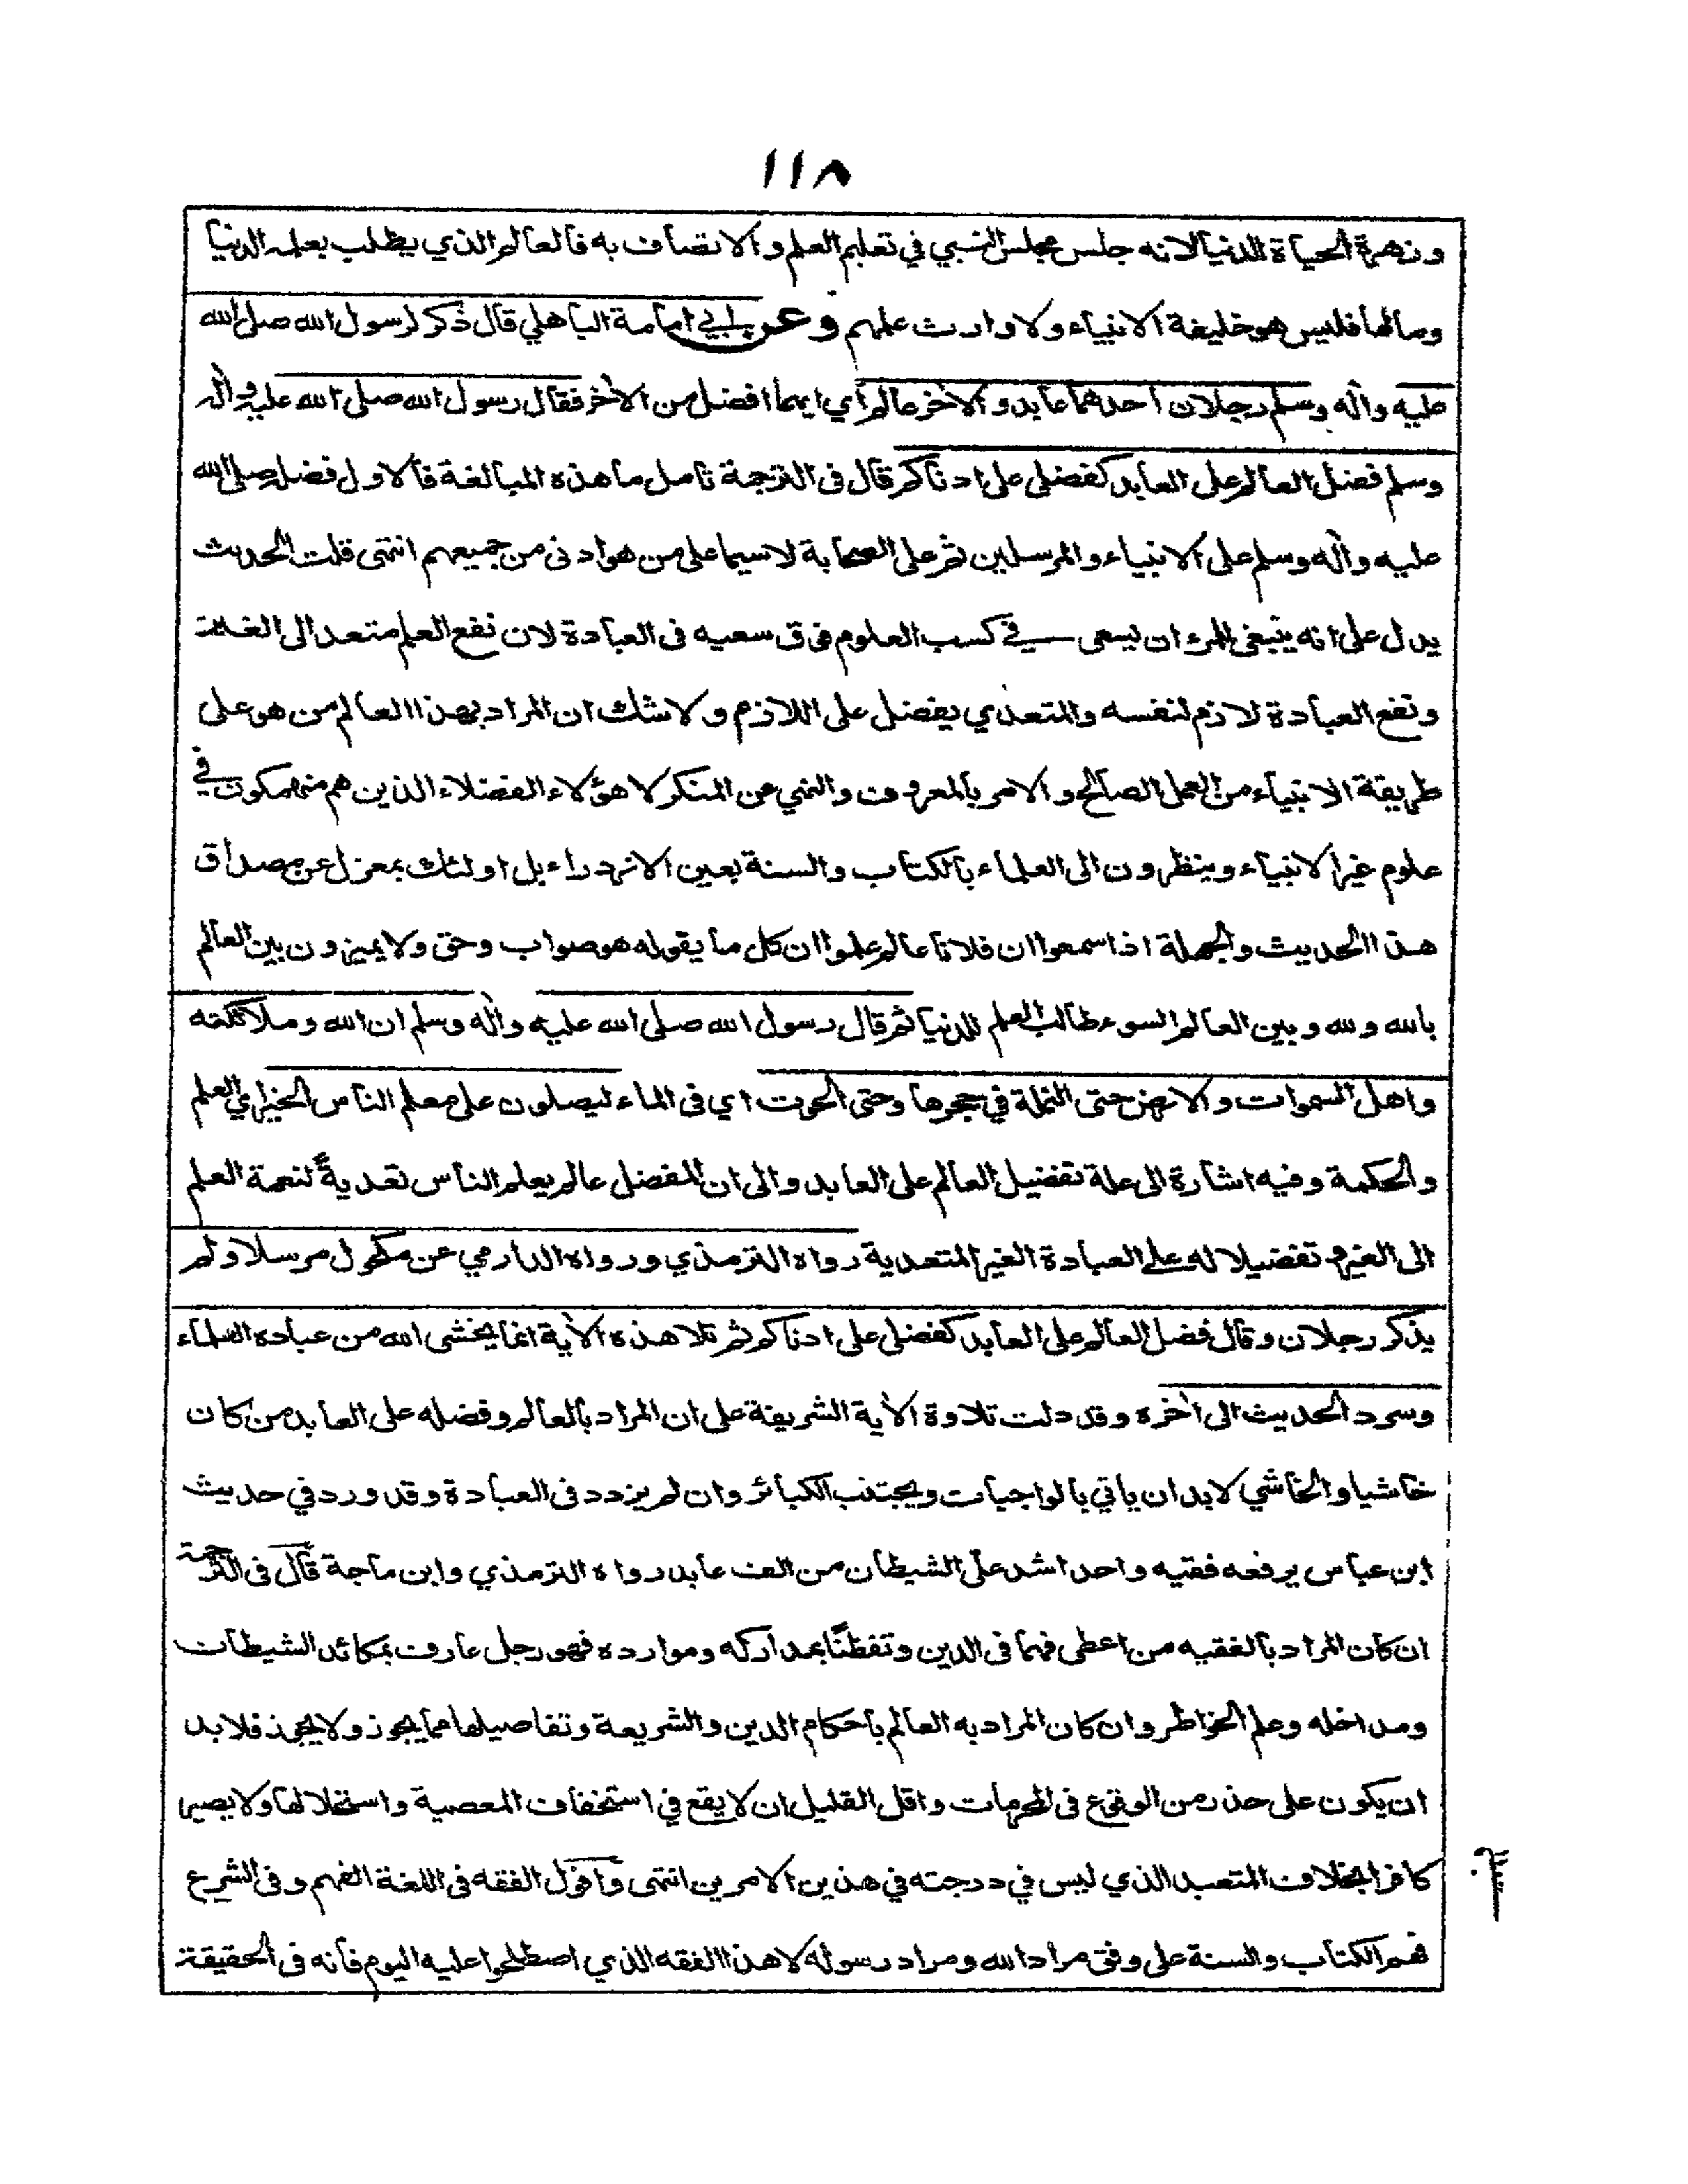 ١١٨
وزهرة الحياة الدنيا لانه جلس مجلس النبي في تعليم العلم والاتصاف به فالعالم الذي يطلب بعلمه الدنيا
ومالها فليس هو خليفة الانبياء ولا وارث علمهم وعن ابي امامة الباهلي قال ذكر لرسول الله صلى الله
عليه واٰله وسلم رجلان احدهما عابد والاٰخر عالم أي ايهما افضل من الاٰخر فقال رسول الله صلى الله عليه واٰله
وسلم فضل العالم على العابد كفضلي على ادناكم قال في الترجمة تأمل ما هذه المبالغة فالاول فضله صلى الله
عليه واٰله وسلم على الانبياء والمرسلين ثم على الصحابة لاسيما على من هو ادنى من جميعهم انتهى قلت الحديث
يدل على انه ينبغي للمرء ان يسعى في كسب العلوم فوق سعيه فى العبادة لان نفع العلم متعد الى الغير
ونفع العبادة لازم لنفسه والمتعدي يفضل على اللازم ولا شك ان المراد بهذا العالم من هو على
طريقة الانبياء من العمل الصالح والامر بالمعروف والنهي عن المنكر لا هؤلاء الفضلاء الذين هم منهمكون في
علوم غير الانبياء وينظرون الى العلماء بالكتاب والسنة بعين الازدراء بل اولئك بمعزل عن مصداق
هذا الحديث والجهلة اذا سمعوا ان فلانا عالم علموا ان كل ما يقوله هو صواب وحق ولا يميزون بين العالم
بالله ولله وبين العالم السوء طالب العلم للدنيا ثم قال رسول الله صلى الله عليه واٰله وسلم ان الله وملائكته
واهل السموات والارض حتى النملة في جحرها وحتى الحوت اي فى الماء ليصلون على معلم الناس الخير اي العلم
والحكمة وفيه اشارة الى علة تفضيل العالم على العابد والى ان المفضل عالم يعلم الناس تعديةً لنعمة العلم
الى الغير وتفضيلا له على العبادة الغير المتعدية رواه الترمذي ورواه الدارمي عن مكحول مرسلا ولم
يذكر رجلان وقال فضل العالم على العابد كفضلي على ادناكم ثم تلا هذه الاٰية انما يخشى الله من عباده العلماء
وسرد الحديث الى اٰخره وقد دلت تلاوة الاٰية الشريفة على ان المراد بالعالم وفضله على العابد من كان
خاشيا والخاشي لا بد ان يأتي بالواجبات ويجتنب الكبائر وان لم يزدد فى العبادة وقد ورد في حديث
ابن عباس يرفعه فقيه واحد اشد على الشيطان من الف عابد رواه الترمذي وابن ماجة قال فى الترجمة
ان كان المراد بالفقيه من اعطى فهما فى الدين وتفطنًا بمداركه وموارده فهو رجل عارف بمكائد الشيطان
ومداخله وعلم الخواطر وان كان المراد به العالم بأحكام الدين والشريعة وتفاصيلها مما يجوز ولا يجوز فلا بد
ان يكون على حذر من الوقوع فى المحرمات واقل القليل ان لا يقع في استخفاف المعصية واستحلالها ولا يصير
كافرا بخلاف المتعبد الذي ليس في درجته في هذين الامرين انتهى واقول الفقه فى اللغة الفهم وفى الشرع
فهم الكتاب والسنة على وفق مراد الله ومراد رسوله لا هذا الفقه الذي اصطلحوا عليه اليوم فأنه فى الحقيقة